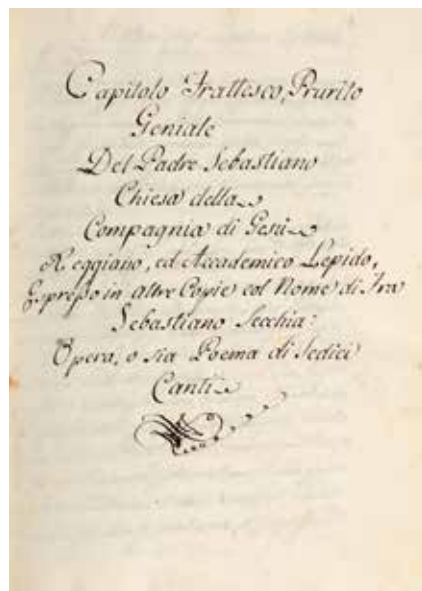 Capitolo Frattesco, Prurito
Geniale
Del Padre Sebastiano
Chiesa della
Compagnia di Gesù
Reggiano, ed Accademico Lepido,
Espresso in altre Copie col Nome di Fra
Sebastiano Secchia:
Opera, o sia Poema di Sedici
Canti